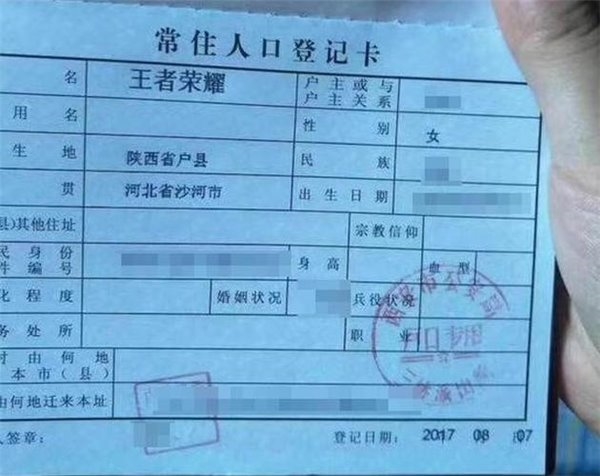 常住人口登记卡
名 王者荣耀 户主或与
户主关系
用名 性别 女
生地 陕西省户县 民族
贯 河北省沙河市 出生日期
县)其他住址 宗教信仰
民身份
件编号 身高 血型
化程度 婚姻状况 兵役状况
务处所 职业
时由何地
本市(县)
由何地迁来本址
人签章: 登记日期: 2017 08 07